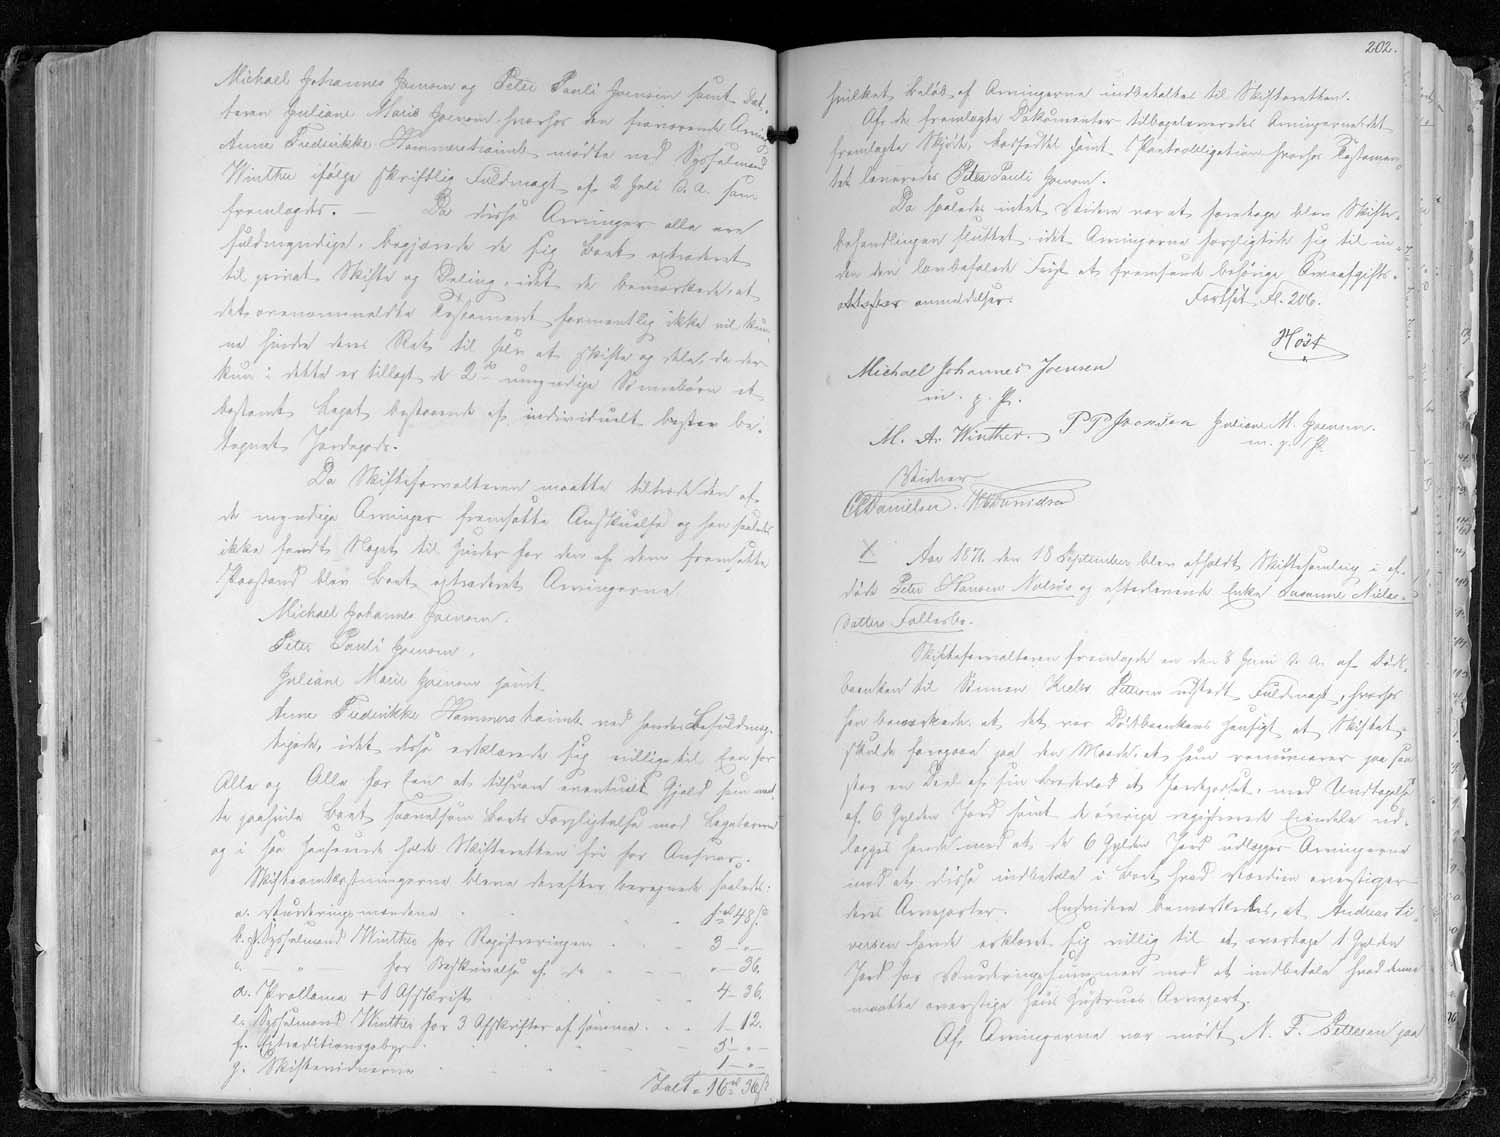 Michael Johannes Joensen og Peter Pauli Joensen samt Dat-
teren Juliane Marie Joensen, hvorhos den fraværende Arving
Anne Frederikke Hammershaimb mødte ved Sysselmand
Winther ifølge skriftlig Fuldmagt af 2 Juli d. A. som
fremlagdes. — Da disse Arvinger alle ere
fuldmyndige, begjærede de sig Boet extraderet
til privat Skifte og Deling, idet de bemærkede, at
det ovenommeldte Testament formentlig ikke vil kun-
ne hindre deres Ret til selv at skifte og dele, da der
kun i dette er tillagt de 2de umyndige Sønnebørn et
bestemt Legat bestaaende af individuelt bestem be-
tegnet Jordegods.
Da Skifteforvalteren maatte tiltræde den af
de myndige Arvinger fremsatte Anskuelse og han saaledes
ikke fandt Noget til Hinder for den af dem fremsatte
Paastand blev Boet extraderet Arvingerne
Michael Johannes Joensen.
Peter Pauli Joensen,
Juliane Marie Joensen samt
Anne Frederikke Hammershaimb ved hendes Befuldmæg-
tigede, idet disse erklærede sig villige til Een for
Alle og Alle for Een at tilsvare eventuelt Gjæld som maat-
te paahvile Boet saavelsom Boets Forpligtelse mod Legatarerne
og i saa Henseende holde Skifteretten fri for Ansvar.
Skifteomkostningerne bleve derefter beregnede saaledes:
a. Vurderingsmændene . . . 1 rd 48 s.
b. Sysselmand Winther for Registreringen . . 3 - " -
c. — " — for Beskrivelse af do " — " - 36.
d. Proklama + 1 Afskrift . . . 4 - 36.
e. Sysselmand Winther for 3 Afskrifter af samme . . . 1 - 12.
f. Extraditionsgebyr . . . 5 - " -
g. Skiftevidnerne . . . 1 - " -
Ialt " 16 rd 36 s
202.
hvilket Beløb af Arvingerne indbetaltes til Skifteretten.
Af de fremlagte Dokumenter tilbageleveredes Arvingerne det
fremlagte Skjøde, samt Pantobligation hvorhos Testamen-
tet leveredes Peter Pauli Joensen.
Da saaledes intet Videre var at foretage blev Skifte-
behandlingen sluttet, idet Arvingerne forpligtede sig til in-
den den lovbefalede Frist at fremsende behørige Arveafgifts-
anmeldelser. Fortsat Fl. 206.
Høst
Michael Johannes Joensen
m. p. P.
M. A. Winther. P P Joensen Juliane M. Joensen.
m. p. P.
Vidner
Danielsen. Davidsen
X Aar 1871 den 18 September blev afholdt Skiftesamling i af-
døde Peter Hansen Nolsøs og efterlevende Enke Susanne Niels-
datters Fællesbo.
Skifteforvalteren fremlagde en den 8 Juni d. A. af Død-
boenken til Sønnen Petersen udstedt Fuldmagt, hvorhos
han bemærkede, at det var Dødboenkens Hensigt at Skiftet
skulde foregaae paa den Maade, at hun renuncerer paa saa
stor en Deel af sin Boeslod at Jordegodset, med Undtagelse
af 6 Gylden Jord samt de øvrige registrerede Eiendele ud-
lægges hende med at de 6 Gylden Jord udlægges Arvingerne
mod at disse indbetale i Boet hvad Værdien overstiger
deres Arveparter. Endvidere bemærkedes, at Andreas Si-
versen havde erklæret sig villig til at overtage 1 Gylden
Jord for Vurderingssummen mod at indbetale hvad denne
maatte overstige hans Hustrues Arvepart.
Af Arvingerne var mødt N. F. Petersen paa